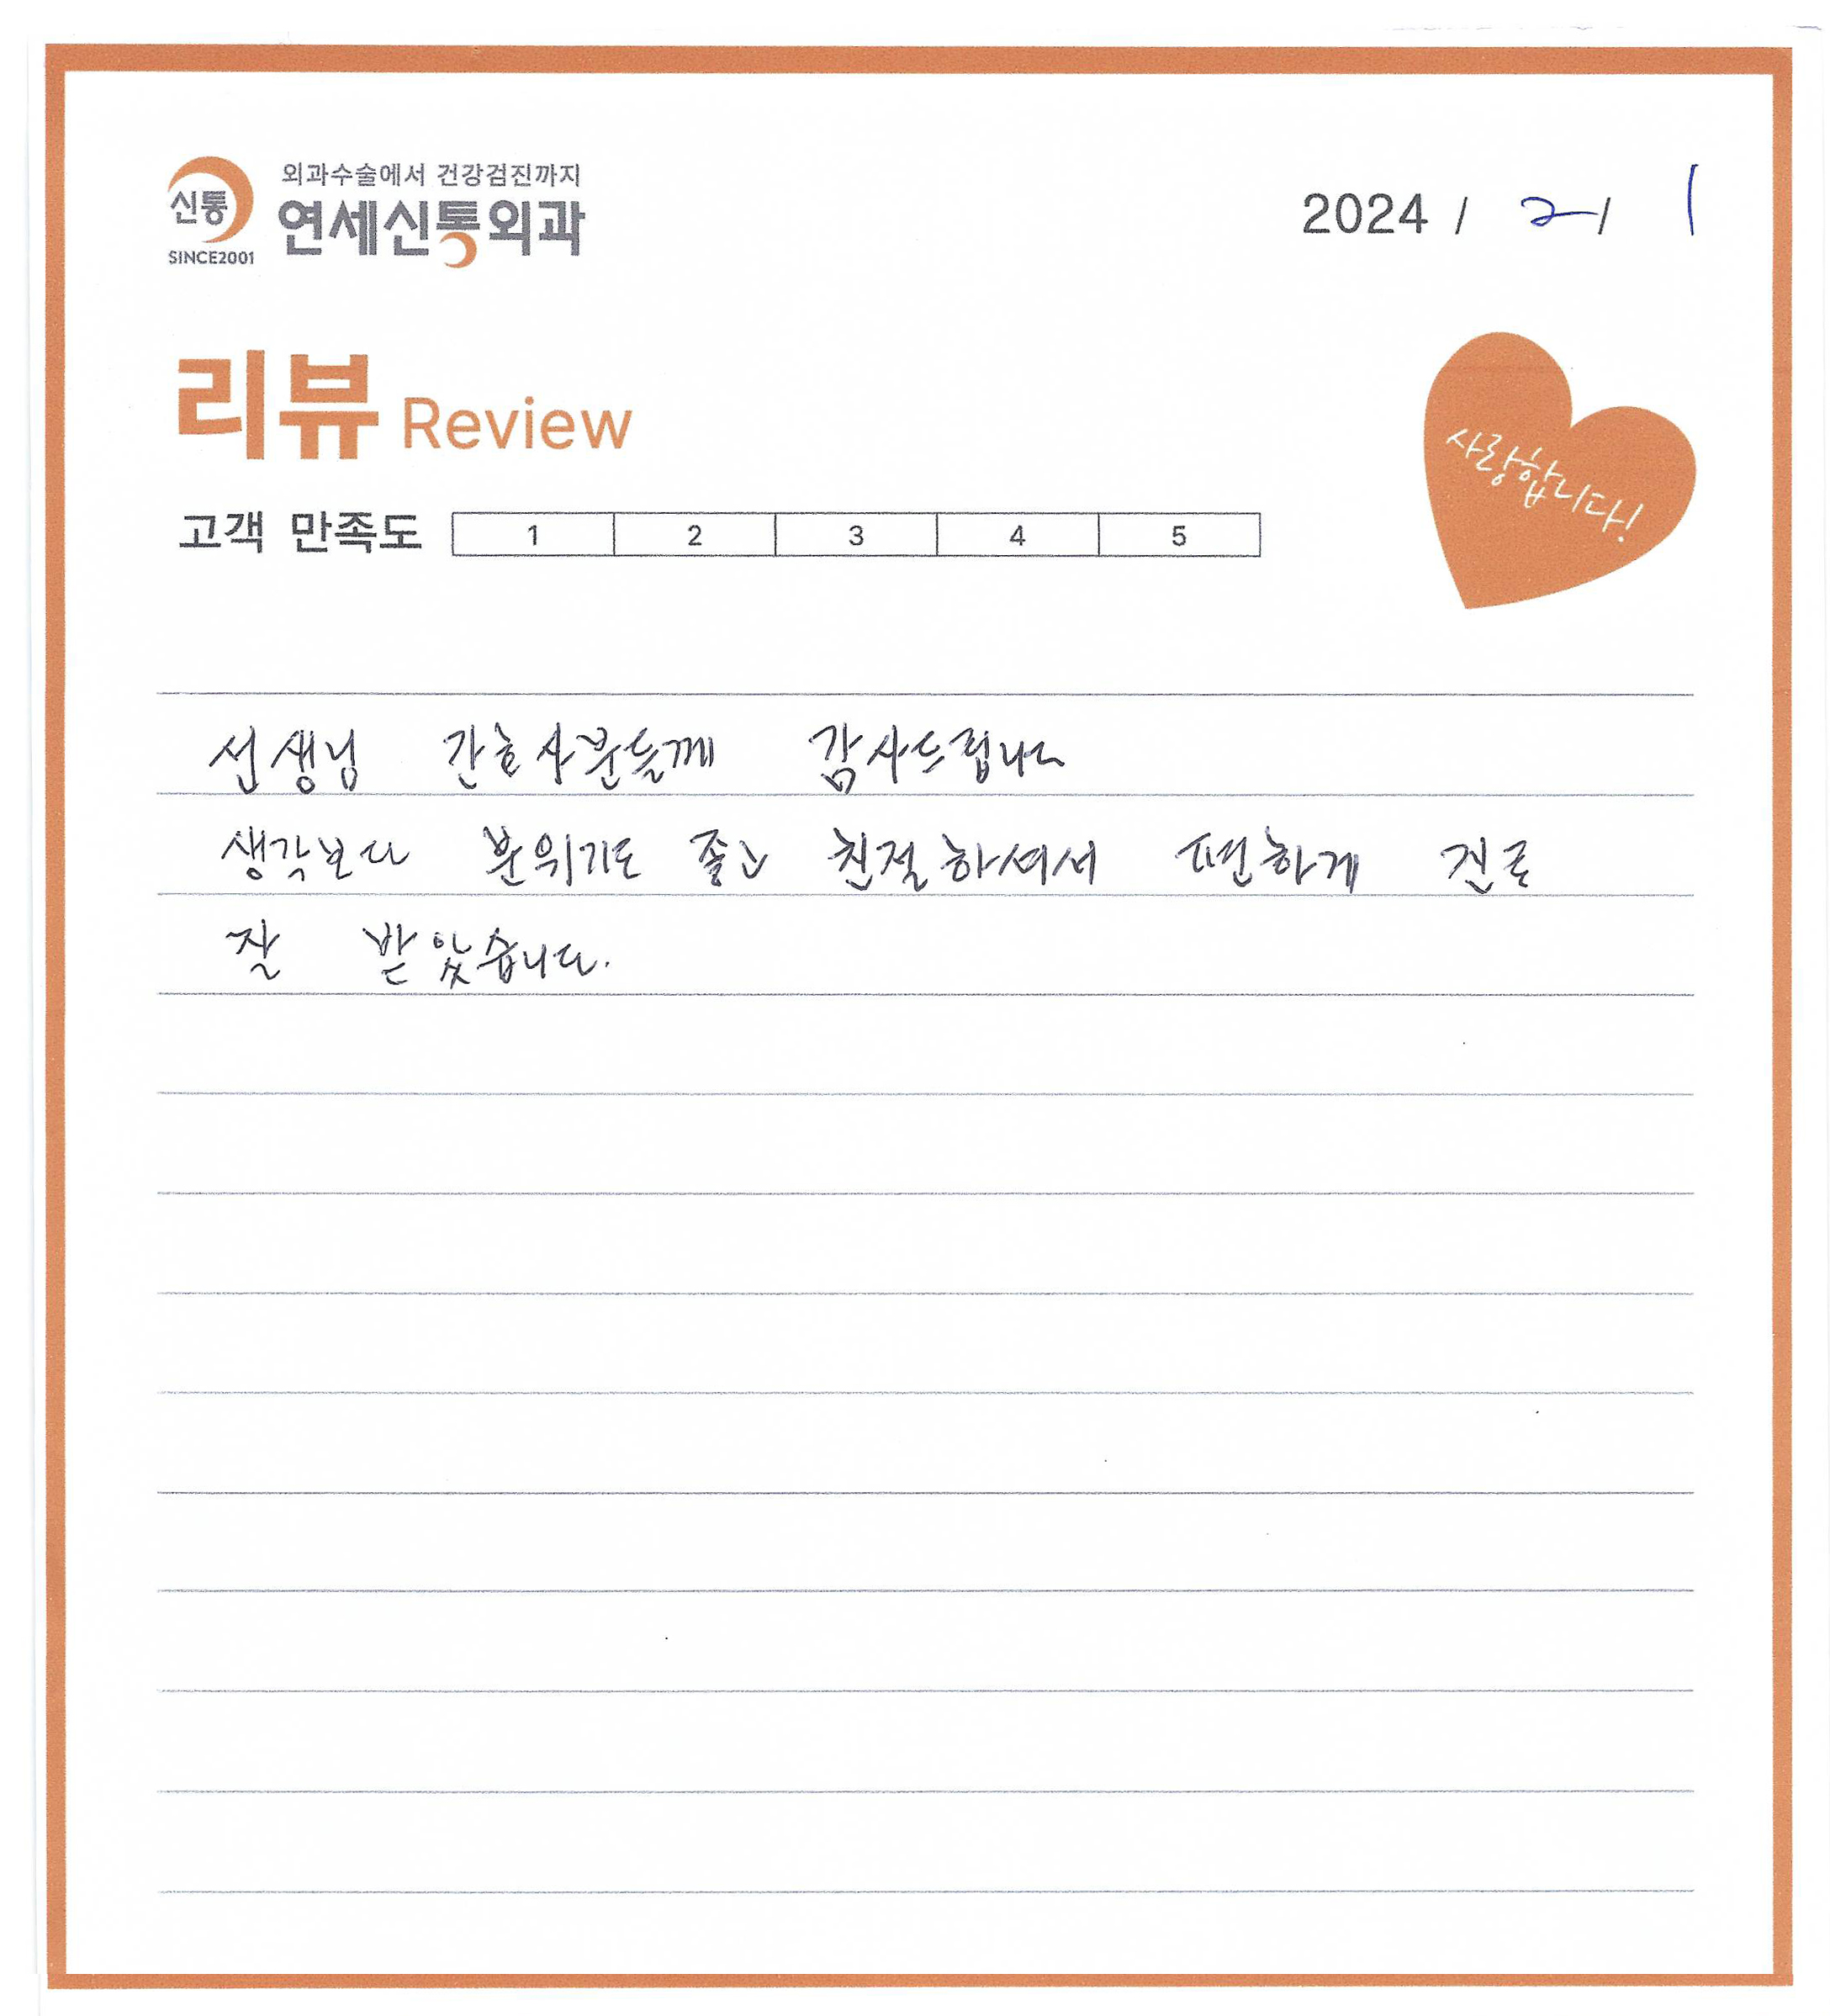 외과수술에서 건강검진까지
신통 연세신통외과
SINCE2001
2024 / 2 / 1
리뷰 Review
사랑합니다!
고객 만족도 1 2 3 4 5
선생님 간호사분들께 감사드립니다
생각보다 분위기도 좋고 친절하셔서 편하게 진료
잘 받았습니다.